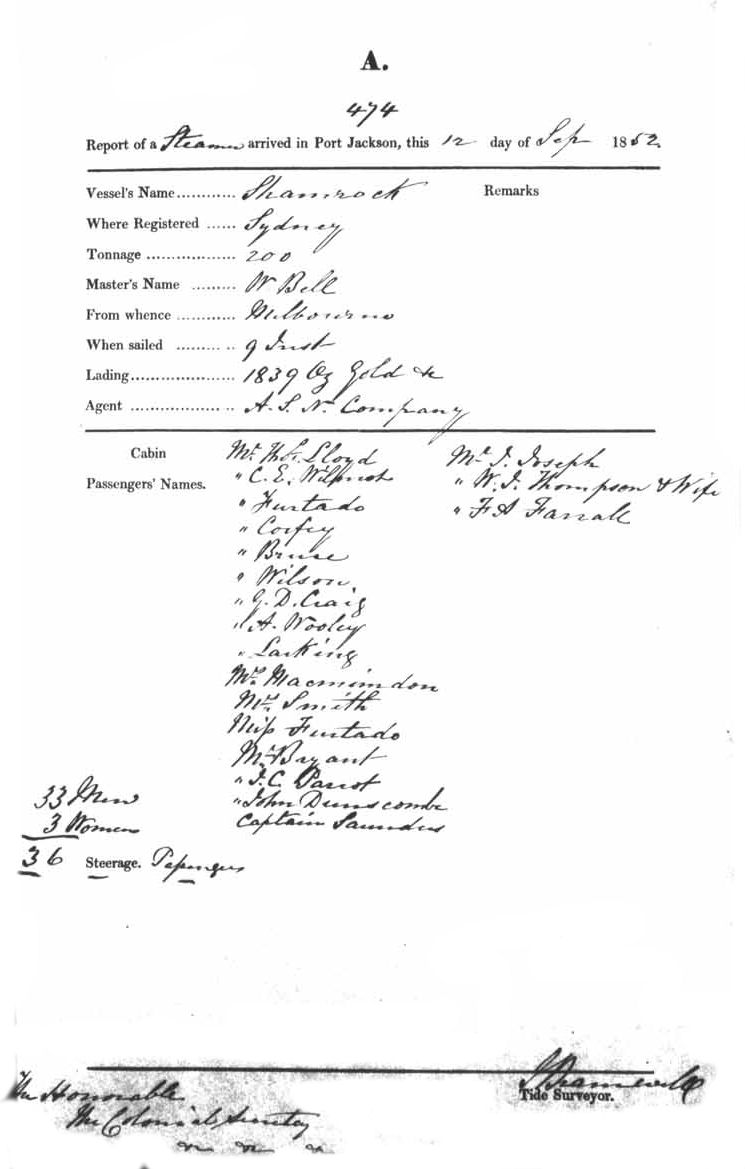 A.
474
Report of a Steamer arrived in Port Jackson, this 12 day of Sep 1852.
Vessel's Name ............ Shamrock Remarks
Where Registered ...... Sydney
Tonnage .................. 200
Master's Name ......... W Bell
From whence ............ Melbourne
When sailed ......... .. 9 Inst
Lading ..................... 1839 Oz Gold &c
Agent .................. .. A. S. N. Company
Cabin
Passengers' Names.
Mr. Thos. Lloyd
" C. E. Wilmot
" Furtado
" Corfey
" Bruse
" Wilson
" G. D. Craig
" A. Wooley
" Larking
Mrs. Macmimdon
Mrs. Smith
Miss Furtado
Mr. Bryant
" J. C. Parrot
" John Dunscombe
Captain Saunders
Mr. J. Joseph
" W. J. Thompson & Wife
" F A Farrall
33 Men
3 Women
36 Steerage. Passengers
Tide Surveyor.
The Honorable
The Colonial Secretary